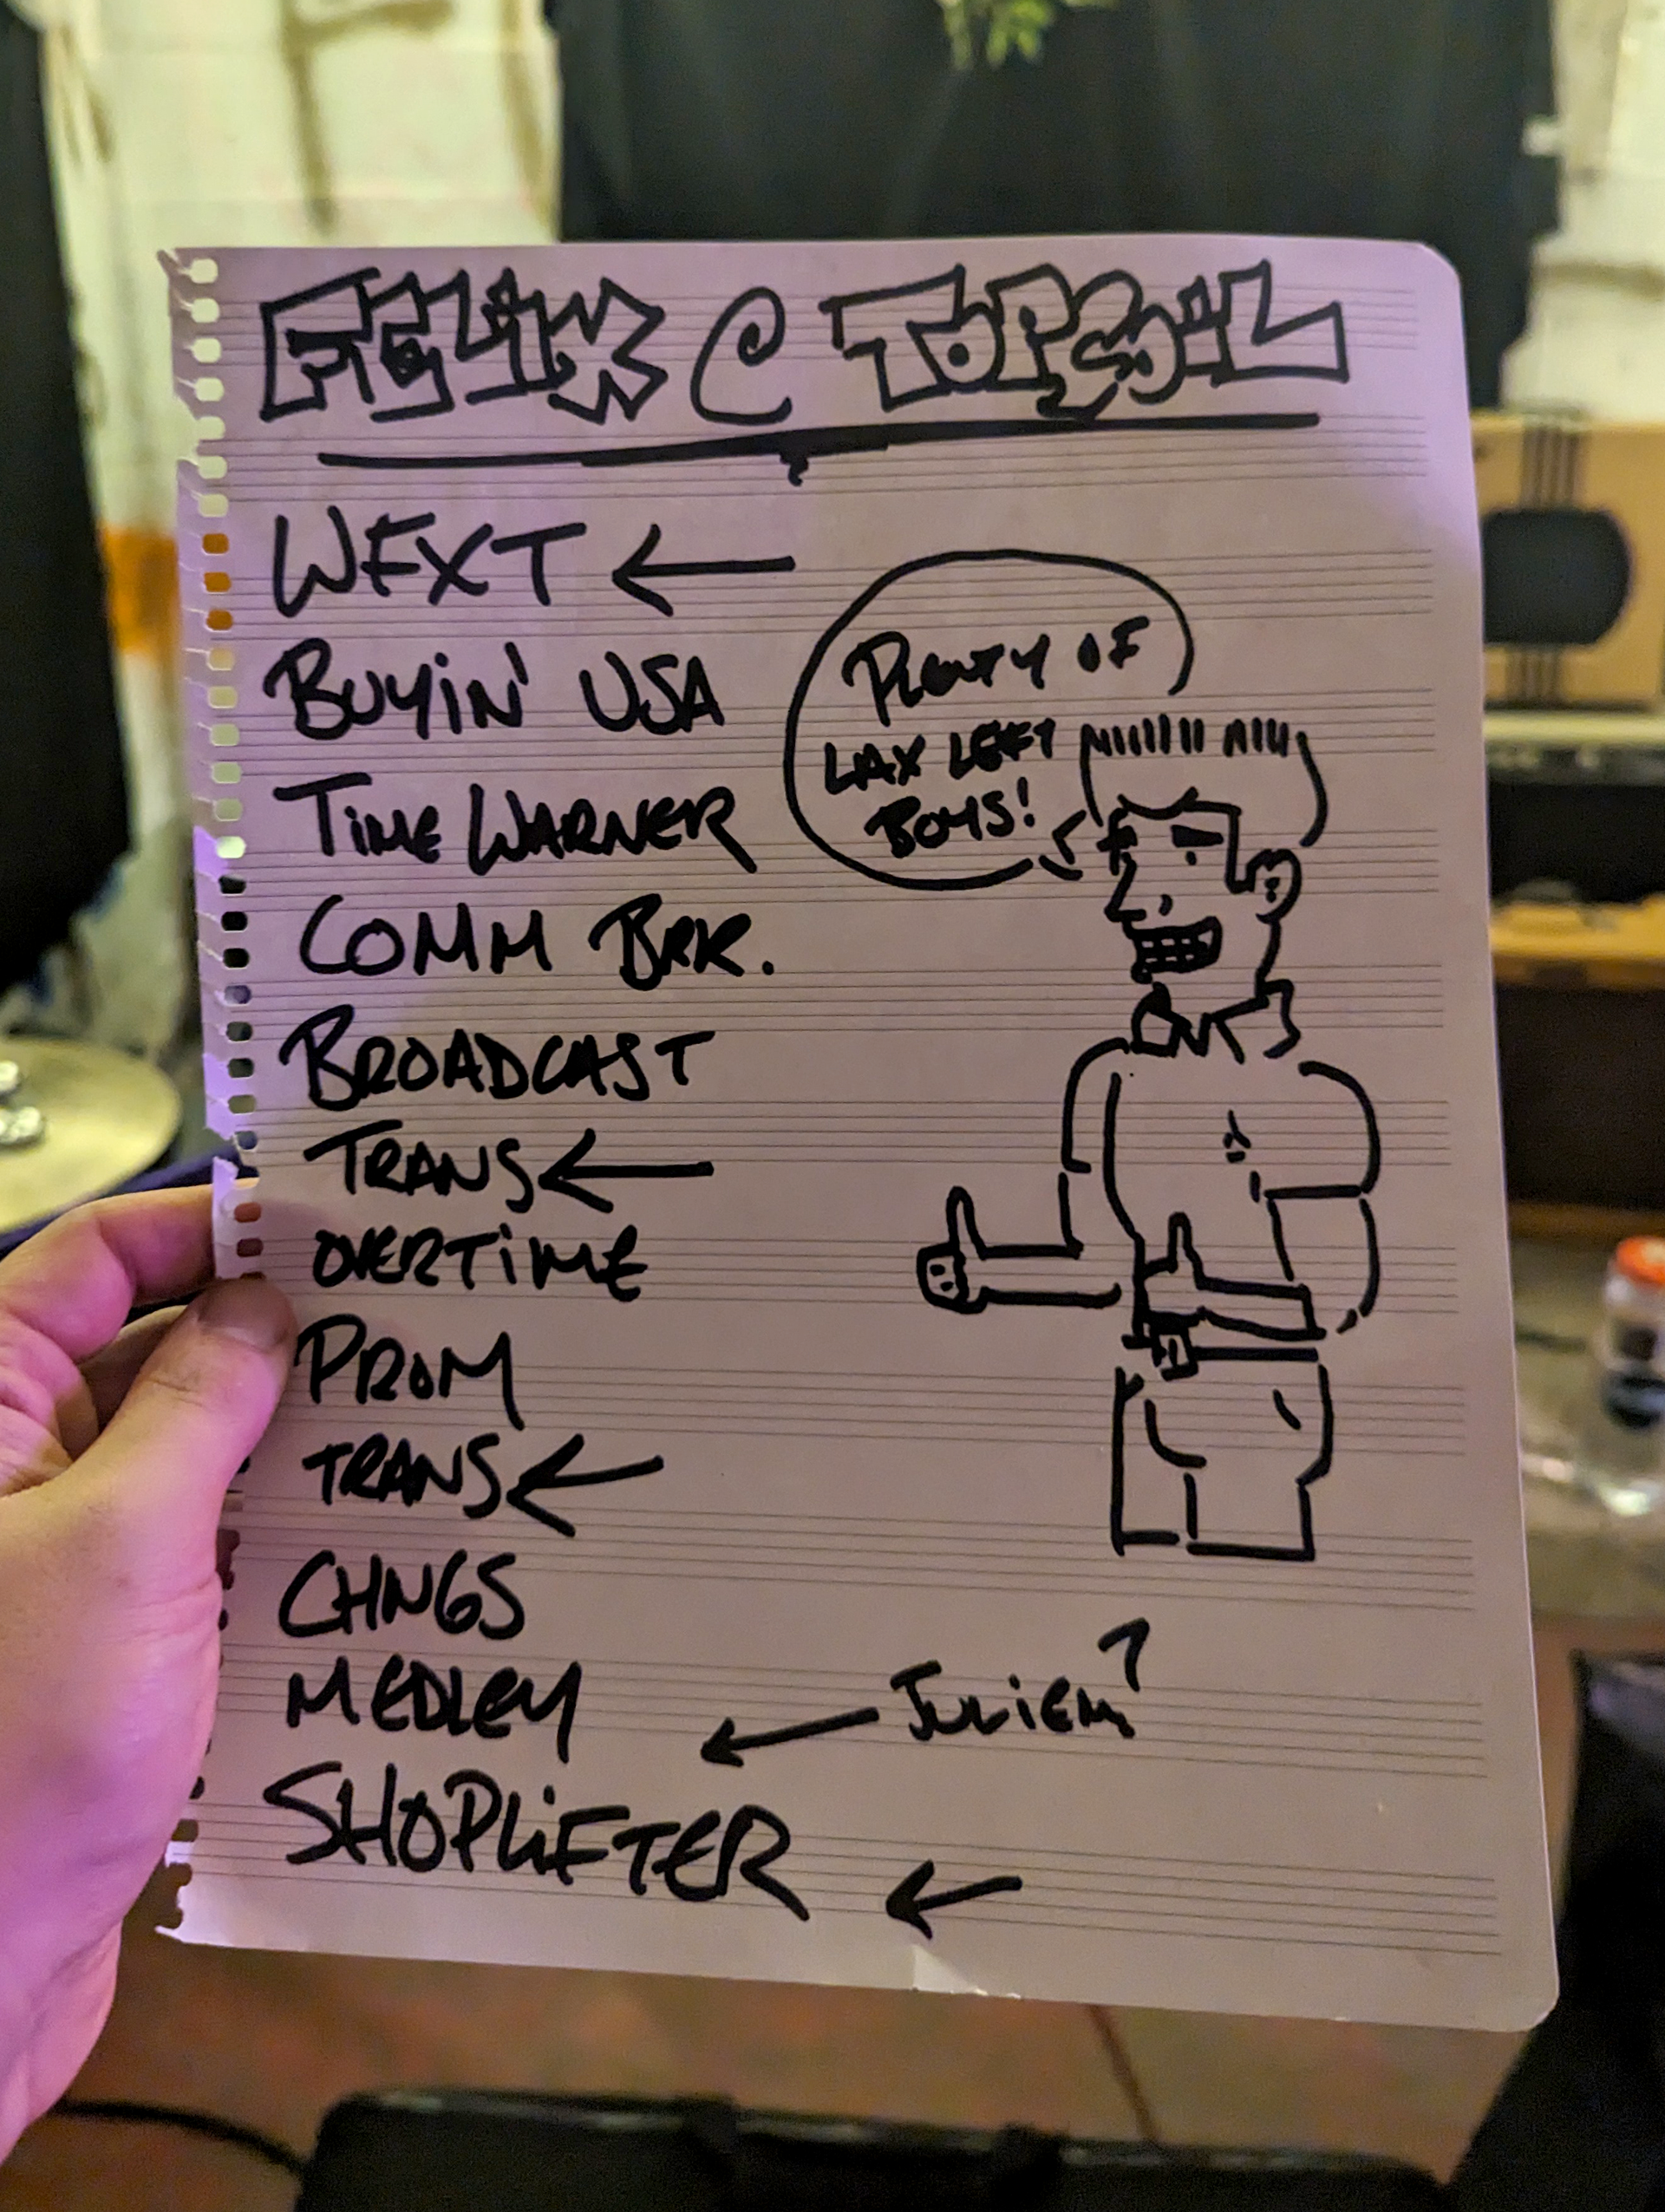 FELIX @ TOPSOIL
WEXT ←
BUYIN' USA
TIME WARNER
COMM BRK.
BROADCAST
TRANS ←
OVERTIME
PROM
TRANS ←
CHNGS
MEDLEY
← JULIEN?
SHOPLIFTER
←
PLENTY OF
LAX LEFT
BOYS!